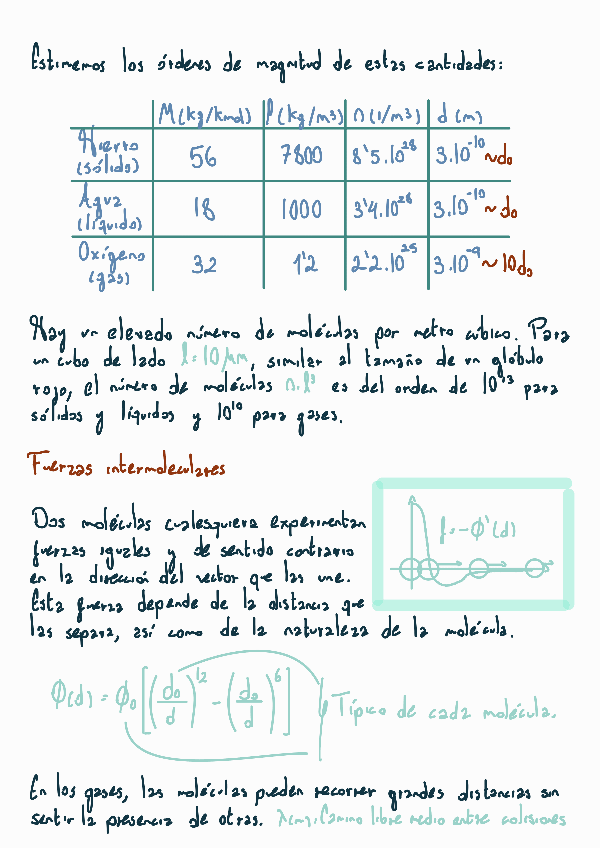 Estimemos los órdenes de magnitud de estas cantidades:
M(kg/kmol) ρ(kg/m³) n(1/m³) d(m)
Hierro (sólido) 56 7800 8'5.10²⁸ 3.10⁻¹⁰ ~d₀
Agua (líquido) 18 1000 3'4.10²⁸ 3.10⁻¹⁰ ~d₀
Oxígeno (gas) 32 1'2 2'2.10²⁵ 3.10⁻⁹ ~10d₀
Hay un elevado número de moléculas por metro cúbico. Para
un cubo de lado l=10μm, similar al tamaño de un glóbulo
rojo, el número de moléculas n.l³ es del orden de 10¹³ para
sólidos y líquidos y 10¹⁰ para gases.
Fuerzas intermoleculares
Dos moléculas cualesquiera experimentan
fuerzas iguales y de sentido contrario
en la dirección del vector que las une.
Esta fuerza depende de la distancia que
las separa, así como de la naturaleza de la molécula.
f=-ϕ'(d)
ϕ(d) = ϕ₀[(d₀/d)¹² - (d₀/d)⁶] Típico de cada molécula.
En los gases, las moléculas pueden recorrer grandes distancias sin
sentir la presencia de otras. λ(m): Camino libre medio entre colisiones